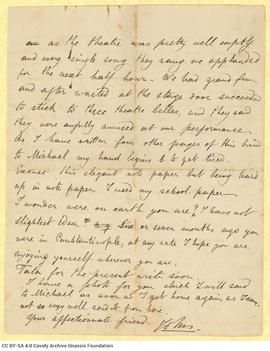 and as the theatre was pretty well empty
and every single song they sang we applauded
for the next half hour. We had grand fun
and after waited at the stage door succeeded
to stick to three theatre belles, and they said
they were awfully amused at our performance.
As I have written four other pages of this kind
to Michael my hand begins to to get tired.
Excuse this elegant note paper but being hard
up in note paper I used my school paper
I wonder were on earth you are, I have not
slightest idea six or seven months ago you
were in Constantinople, at any rate I hope you are
enjoying yourself wherever you are.
Tata for the present write soon.
I have a photo for you which I will send
to Michael as soon as I get home again as I am
not so very well sd't from here
Your affectionate friend John.
CC BY-SA 4.0 Cavafy Archive Onassis Foundation